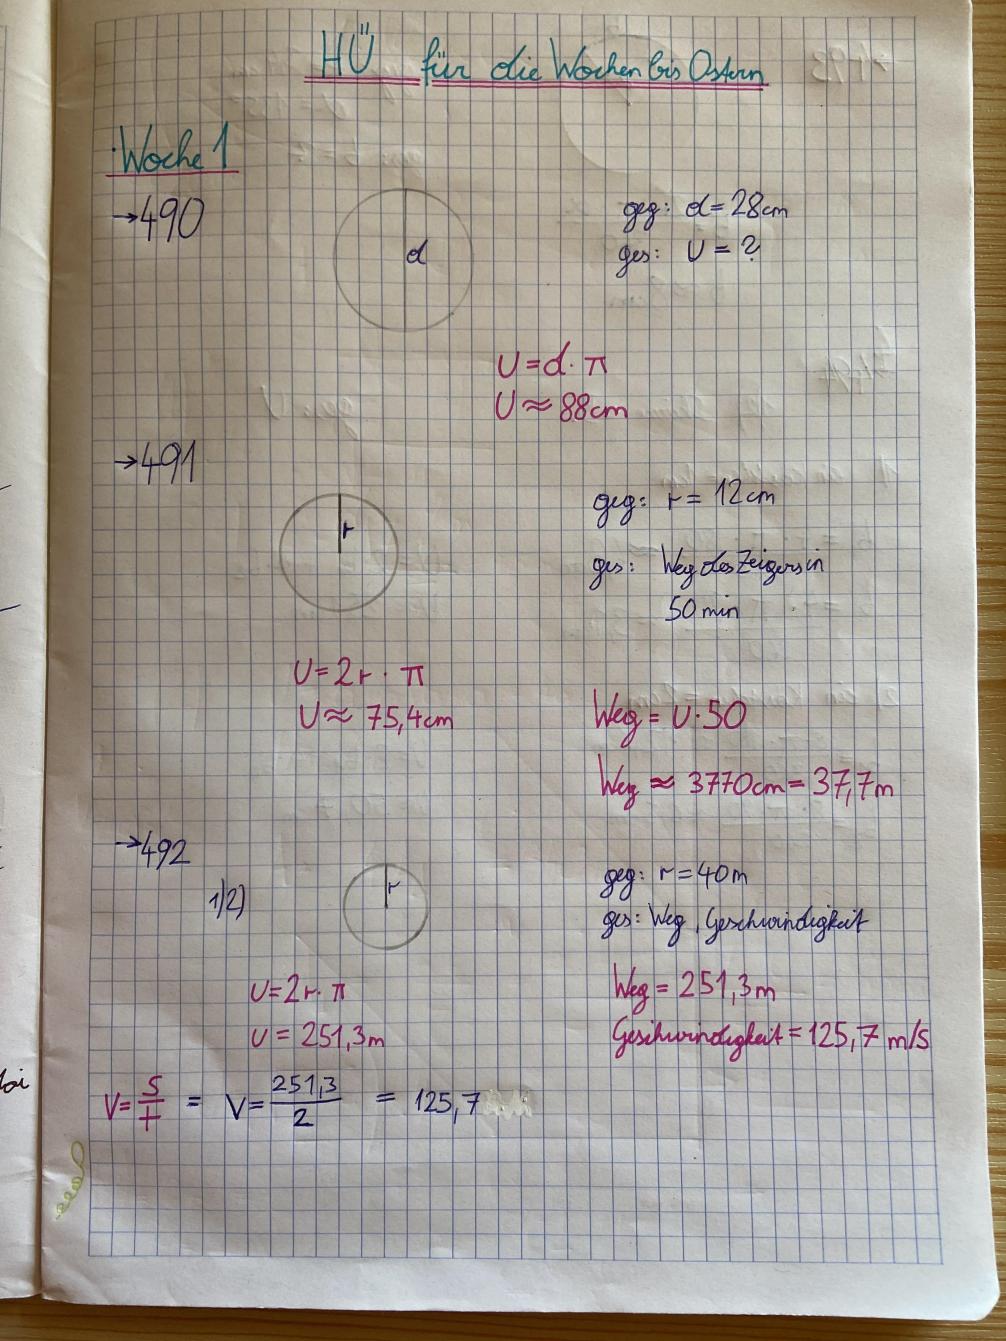 HÜ für die Wochen bis Ostern
Woche 1
→490
d
geg: d=28cm
ges: U = ?
U = d · π
U ≈ 88cm
→491
r
geg: r = 12cm
ges: Weg des Zeigers in
50 min
U = 2r · π
U ≈ 75,4cm
Weg = U·50
Weg ≈ 3770cm = 37,7m
→492
1)2)
r
geg: r=40m
ges: Weg, Geschwindigkeit
U=2r·π
U = 251,3m
Weg = 251,3m
Geschwindigkeit = 125,7 m/s
V = s/t = V = 251,3/2 = 125,7